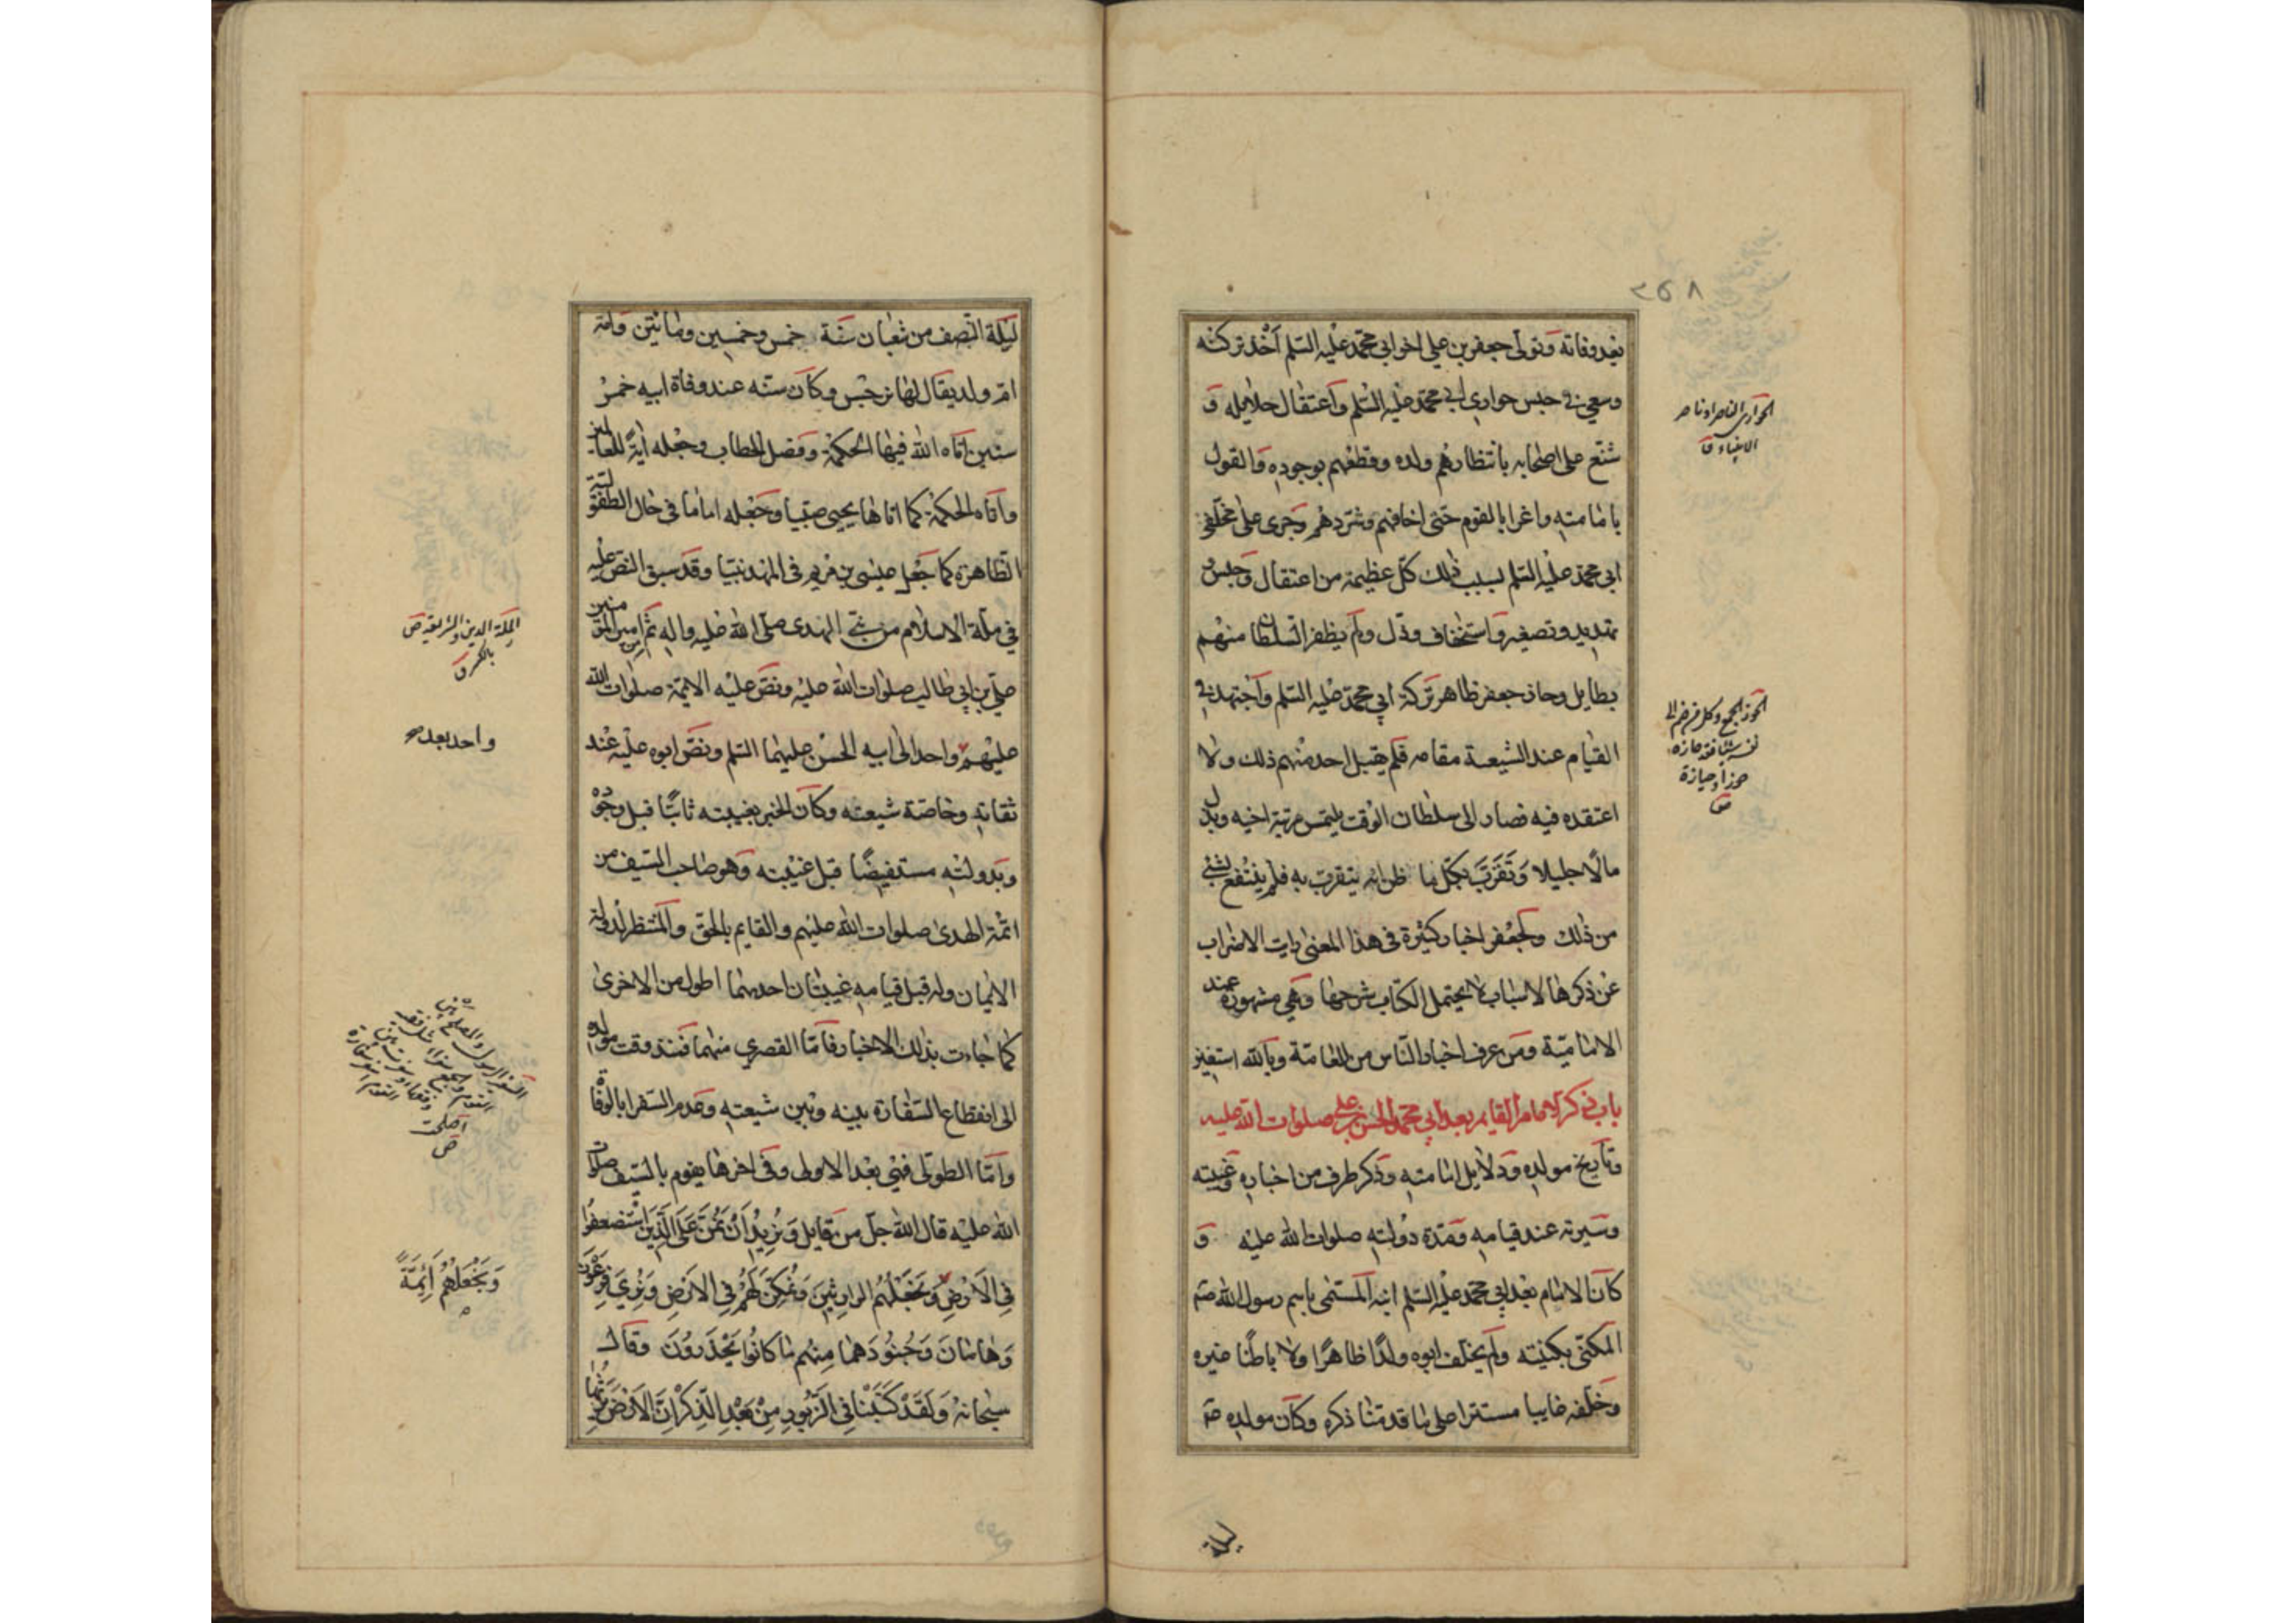 ٣٥٨
بعد وفاته وتولى جعفر بن علي اخو ابي محمد عليه السلم اخذ تركته
وسعى في حبس جواري ابي محمد عليه السلم واعتقال حلايله و
شنع على اصحابه بانتظارهم ولده وقطعهم بوجوده والقول
بامامته واغرا بالقوم حتى اخافهم وشردهم وجرى على مخلفي
ابي محمد عليه السلم بسبب ذلك كل عظيمة من اعتقال وحبس و
تهديد وتصغير واستخفاف وذل ولم يظفر السلطان منهم
بطايل وحاز جعفر ظاهر تركة ابي محمد عليه السلم واجتهد في
القيام عند الشيعة مقامه فلم يقبل احد منهم ذلك ولا
اعتقده فيه فصار الى سلطان الوقت يلتمس مرتبة اخيه وبذل
مالا جليلا وتقرب بكل ما ظن انه يتقرب به فلم ينتفع بشئ
من ذلك ولجعفر اخبار كثيرة في هذا المعنى رايت الاضراب
عن ذكرها لاسباب لا يحتمل الكتاب شرحها وهي مشهورة عند
الامامية ومن عرف اخبار الناس من العامة وبالله استعين
باب ذكر الامام القايم بعد ابي محمد الحسن بن علي صلوات الله عليه
وتاريخ مولده ودلايل امامته وذكر طرف من اخباره وغيبته
وسيرته عند قيامه ومدة دولته صلوات الله عليه و
كان الامام بعد ابي محمد عليه السلم ابنه المسمى باسم رسول الله صلم
المكنى بكنيته ولم يخلف ابوه ولدا ظاهرا ولا باطنا غيره
وخلفه غايبا مستترا على ما قدمنا ذكره وكان مولده عم
ليلة
الحواري الناصر او ناصر
الانبياء ق
الحوز الجمع وكل من ضم الى
نفسه شيئا فقد حازه
حوزا وحيازة
ص
ليلة النصف من شعبان سنة خمس وخمسين ومائتين وامه
ام ولد يقال لها نرجس وكان سنه عند وفاة ابيه خمس
سنين اتاه الله فيها الحكمة وفصل الخطاب وجعله اية للعالمين
واتاه الحكمة كما اتاها يحيى صبيا وجعله اماما في حال الطفولية
الظاهرة كما جعل عيسى بن مريم في المهد نبيا وقد سبق النص عليه
في ملة الاسلام من نبي الهدى صلى الله عليه واله ثم امير المؤمنين
علي بن ابي طالب صلوات الله عليه ونص عليه الائمة صلوات الله
عليهم واحدا الى ابيه الحسن عليهما السلم ونص ابوه عليه عند
ثقاته وخاصة شيعته وكان الخبر بغيبته ثابتا قبل وجوده
وبدولته مستفيضا قبل غيبته وهو صاحب السيف من
ائمة الهدى صلوات الله عليهم والقايم بالحق والمنتظر لدولة
الايمان وله قبل قيامه غيبتان احديهما اطول من الاخرى
كما جاءت بذلك الاخبار فاما القصرى منهما فمنذ وقت مولده
الى انقطاع السفارة بينه وبين شيعته وعدم السفرا بالوفاة
واما الطولى فهي بعد الاولى وفي اخرها يقوم بالسيف صلوات
الله عليه قال الله جل من قايل وَنُرِيدُ اَنْ نَمُنَّ عَلَى الَّذِينَ اسْتُضعِفُوا
فِي الْاَرْضِ وَنَجْعَلَهُمُ الوارِثِينَ وَنُمَكِّنَ لَهُمْ فِي الارْضِ وَنُرِيَ فِرْعَوْنَ
وَهامانَ وَجُنُودَهُما مِنهُم ما كانُوا يَحْذَرونَ وقال
سبحانه وَلَقَدْ كَتَبْنا فِي الزَّبُورِ مِنْ بَعْدِ الذِّكْرِ اَنَّ الاَرْضَ يَرِثُها
الملة الدين والشريعة ص
بالكسر ق
واحد بعد
السفير الرسول والمصلح بين
القوم والجمع سفراء
اصلحت
ص
وَنَجْعَلَهُمْ اَئِمَّةً